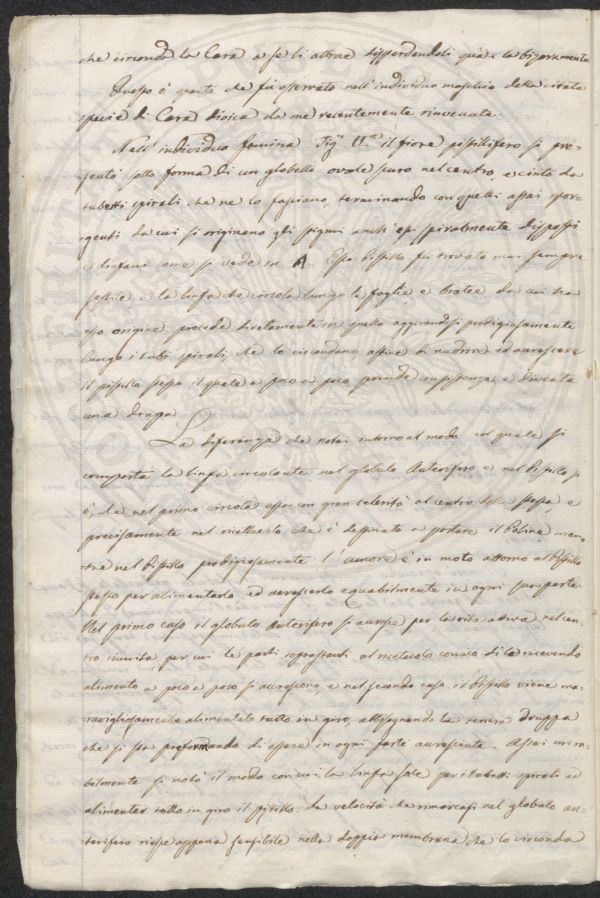 che circonda la Cara a se li attrae disperdendoli quà e là bizzarramente
Questo è quanto che fù osservato nell'individuo maschio della citata
specie di Cara dioica da me recentemente rinvenuta.
Nell'individuo femina Fig.ª II.ª il fiore pistillifero si pre-
senta sotto forma di un globetto ovale scuro nel centro, e cinto da
tubetti spirali che ne lo fasciano, terminando con quelli assai spor-
genti da cui si originano gli stigmi anch'essi spiralmente disposti
e linfari come si vede in A. Esso Pistillo fu trovato mai sempre
sessile e la linfa che circola lungo le foglie e bratee da cui trae
esso origine, procede direttamente in quello aggirandosi prodigiosamente
lungo i tubi spirali che lo circondano affine di nudrire ed accrescere
il pistillo stesso il quale a poco a poco prende consistenza e diventa
una drupa.
La differenza che notai intorno al modo col quale si
comporta la linfa circolante nel globulo Anterifero e nel Pistillo si
è, che nel primo circola essa con gran celerità al centro dello stesso, e
precisamente nel ricettacolo che è destinato a portare il Poline men-
tre nel Pistillo prodigiosamente l'umore è in moto attorno al Pistillo
stesso per alimentarlo, ed accrescerlo equabilmente in ogni sua parte.
Nel primo caso il globulo Anterifero si accresce per la vita attiva nel cen-
tro riunita per cui le parti soprastanti al ricettacolo conico di la ricevendo
alimento a poco a poco si accrescono, e nel secondo caso il Pistillo viene ma-
ravigliosamente alimentato tutto in giro, abbisognando la tenera Druppa
che si sta preformando di essere in ogni parte accresciuta. Assai mira-
bilmente si notò il modo con cui la linfa sale per i tubetti spirali ad
alimentar tutto in giro il pistillo. La velocità che rimarcasi nel globulo an-
terifero riesce appena sensibile nella doppia membrana che lo circonda